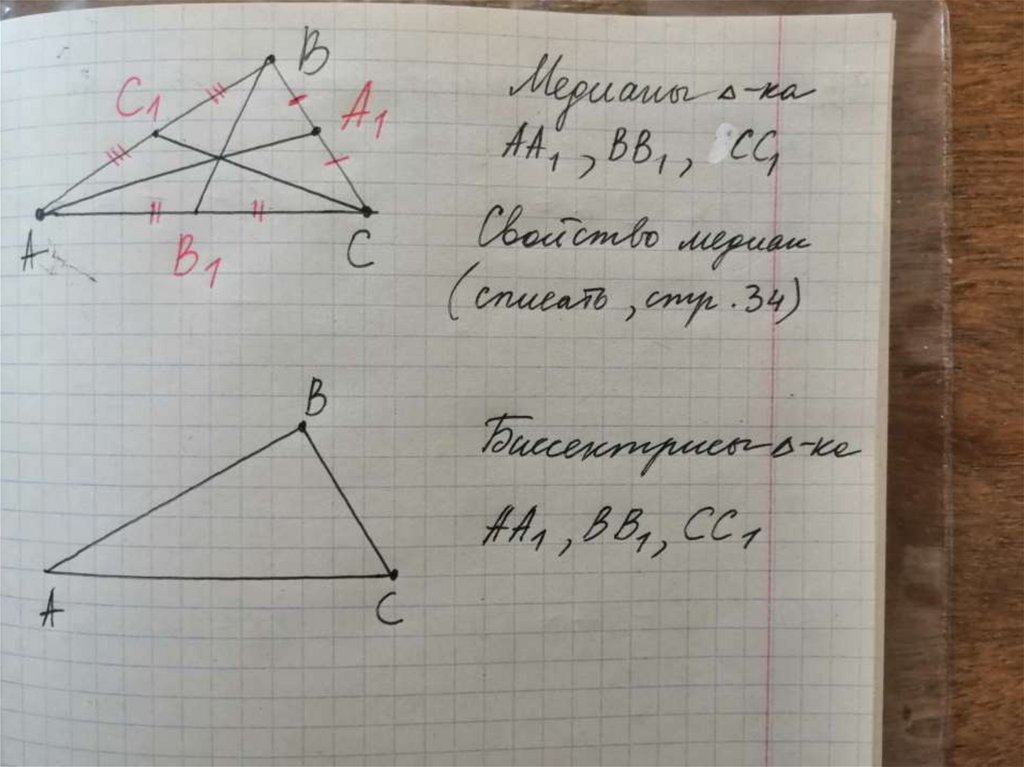 B
C1
A1
A
B1
C
Медианы Δ-ка
AA1, BB1, CC1
Свойство медиан
(списать, стр. 34)
B
A
C
Биссектрисы Δ-ка
AA1, BB1, CC1